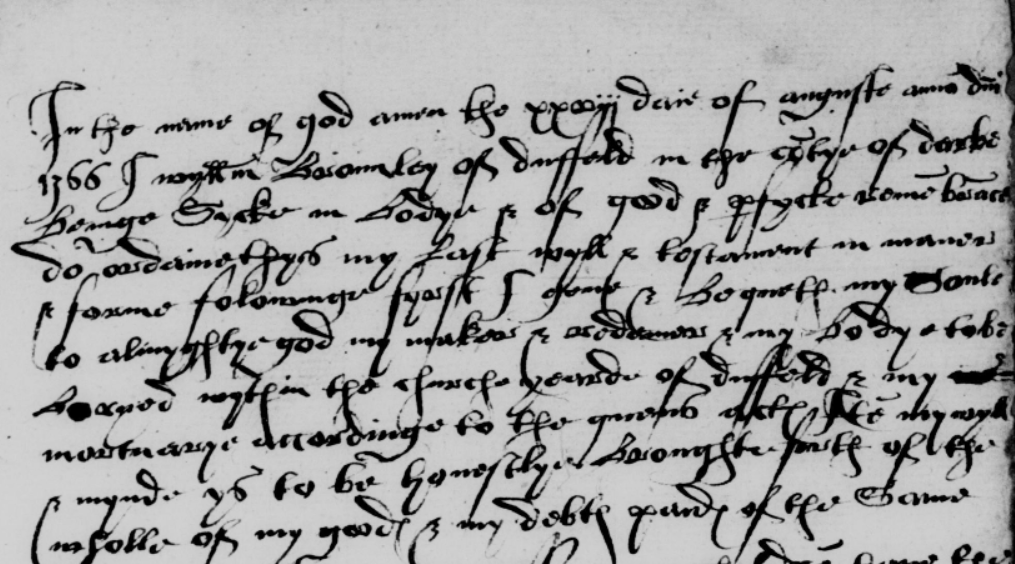 In the name of god amen the xxviij daie of auguste anno dni
1566 I wyllm Bromley of duffeld in the cotye of darbe
beinge Sycke in bodye & of good & pfycte reme brace
do ordaine thys my last wyll & testament in maner
& forme folowinge fyrst I geue & bequeth my Soule
to almyghtye god my maker & redemer & my bodye to be
buryed wythin the churche yearde of duffeld & my
mortuarye accordinge to the quens acte Ite my wyll
& mynde ys to be honestlye broughte forth of the
wholle of my goods & my debts payd of the Same